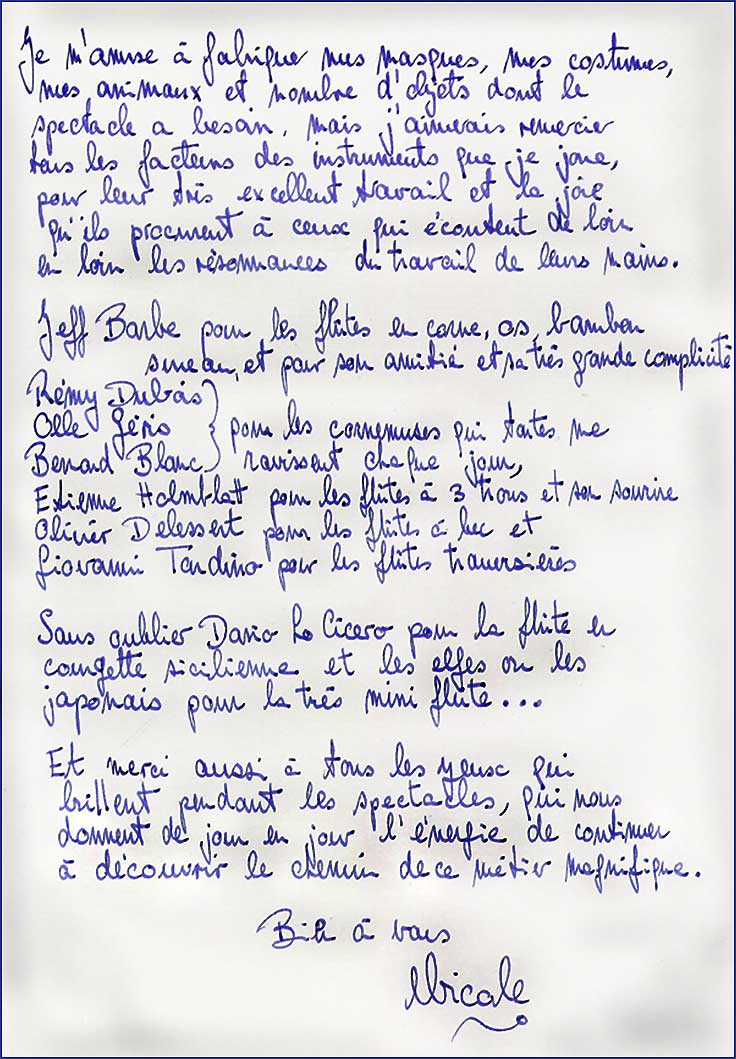 Je m'amuse à fabriquer mes masques, mes costumes,
mes animaux et nombre d'objets dont le
spectacle a besoin, mais j'aimerais remercier
tous les facteurs des instruments que je joue,
pour leur très excellent travail et la joie
qu'ils procurent à ceux qui écoutent de loin
en loin les résonnances du travail de leurs mains.
Jeff Barbe pour les flûtes en corne, os, bambou
sureau, et pour son amitié et sa très grande complicité
Rémy Dubois
Olle Géris } pour les cornemuses qui toutes me
Bernard Blanc ravissent chaque jour,
Etienne Holmblatt pour les flûtes à 3 trous et son sourire
Olivier Delessert pour les flûtes à bec et
Giovanni Tardino pour les flûtes traversières
Sans oublier Dario Lo Cicero pour la flûte en
courgette sicilienne et les elfes ou les
japonais pour la très mini flûte...
Et merci aussi à tous les yeux qui
brillent pendant les spectacles, qui nous
donnent de jour en jour l'énergie de continuer
à découvrir le chemin de ce métier magnifique.
à vous